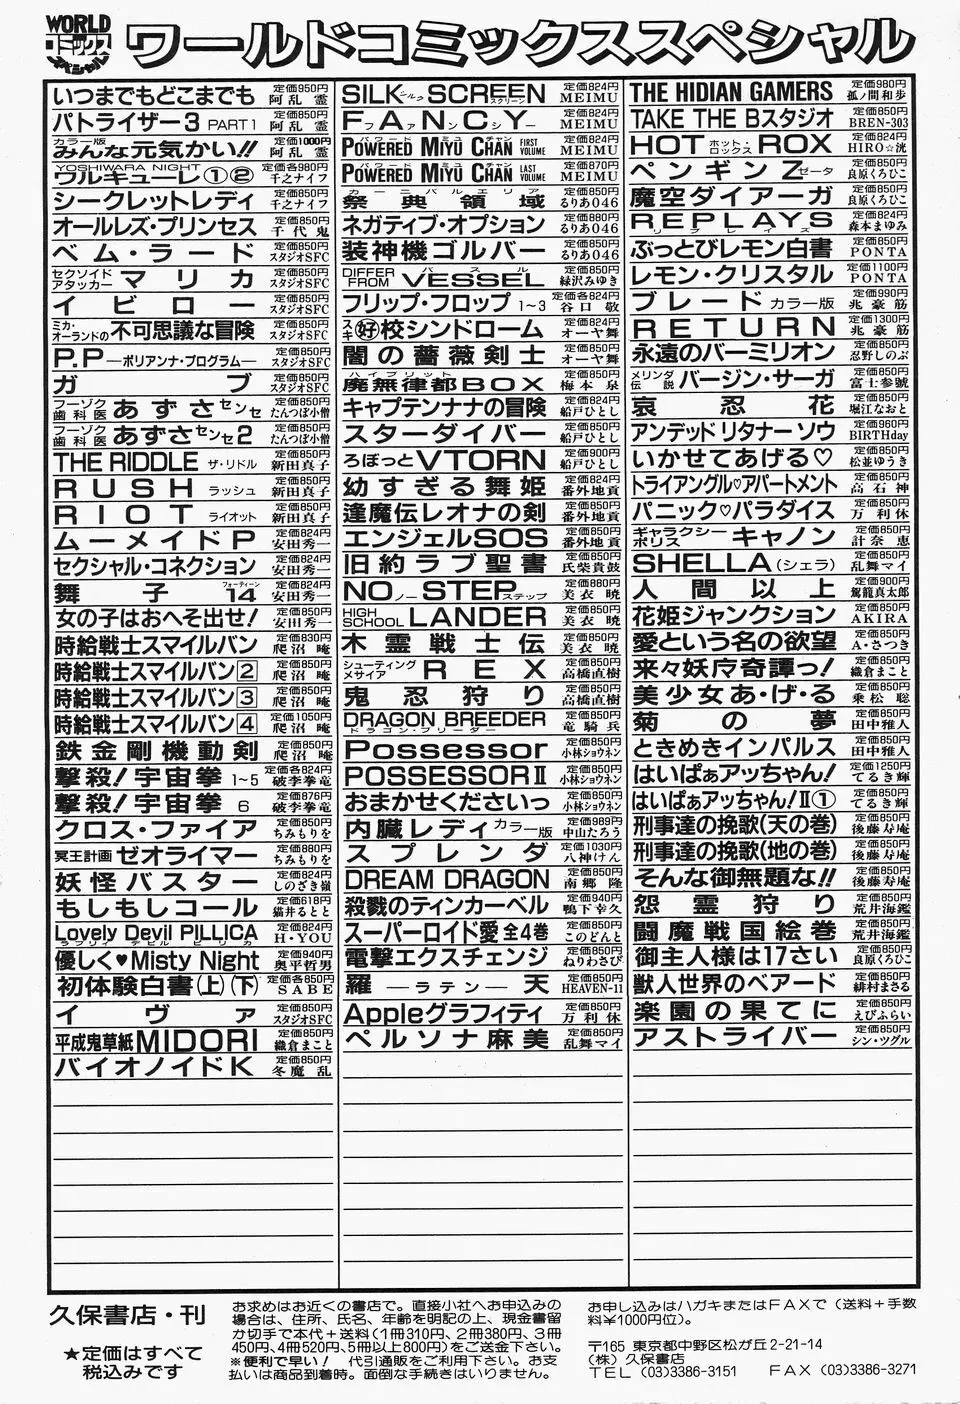 WORLD
コミックス
スペシャル
ワールドコミックススペシャル
いつまでもどこまでも 定価950円 阿乱霊
パトライザー3 PART1 定価850円 阿乱霊
カラー版 みんな元気かい!! 定価1000円 阿乱霊
YOSHIWARA NIGHT ワルキューレ①② 定価各980円 千之ナイフ
シークレットレディ 定価850円 千之ナイフ
オールレズ・プリンセス 定価850円 千代鬼
ベム・ラード 定価850円 スタジオSFC
セクソイドアタッカー マリカ 定価850円 スタジオSFC
イビロー 定価850円 スタジオSFC
ミカ・オーランドの不可思議な冒険 定価850円 スタジオSFC
P.P ―ポリアンナ・プログラム― 定価850円 スタジオSFC
ガブ 定価850円 スタジオSFC
フーゾク歯科医 あずさセンセ 定価850円 たんつぼ小僧
フーゾク歯科医 あずさセンセ2 定価850円 たんつぼ小僧
THE RIDDLE ザ・リドル 定価850円 新田真子
RUSH ラッシュ 定価850円 新田真子
RIOT ライオット 定価850円 新田真子
ムーメイドP 定価824円 安田秀一
セクシャル・コネクション 定価824円 安田秀一
舞子14 フォーティーン 定価824円 安田秀一
女の子はおへそ出せ! 定価850円 安田秀一
時給戦士スマイルバン 定価830円 爬沼唵
時給戦士スマイルバン2 定価850円 爬沼唵
時給戦士スマイルバン3 定価850円 爬沼唵
時給戦士スマイルバン4 定価1050円 爬沼唵
鉄金剛機動剣 定価850円 爬沼唵
撃殺!宇宙拳 1~5 定価各824円 破李拳竜
撃殺!宇宙拳 6 定価876円 破李拳竜
クロス・ファイア 定価850円 ちみもりを
冥王計画ゼオライマー 定価880円 ちみもりを
妖怪バスター 定価824円 しのざき嶺
もしもしコール 定価618円 猫井るとと
Lovely Devil PILLICA ラブリィ デビル ピリカ 定価824円 H・YOU
優しく♥Misty Night 定価940円 奥平哲男
初体験白書(上)(下) 定価各850円 SABE
イヴァ 定価850円 スタジオSFC
平成鬼草紙MIDORI 定価850円 織倉まこと
バイオノイドK 定価850円 冬魔乱
SILK シルク SCREEN スクリーン 定価824円 MEIMU
FANCY ファンシー 定価824円 MEIMU
POWERED MIYU CHAN パワード ミュウ チャン FIRST VOLUME 定価850円 MEIMU
POWERED MIYU CHAN パワード ミュウ チャン LAST VOLUME 定価870円 MEIMU
祭典領域 カーニバルエリア 定価850円 るりあ046
ネガティブ・オプション 定価880円 るりあ046
装神機ゴルバー 定価850円 るりあ046
DIFFER FROM VESSEL バスル 定価850円 緑沢みゆき
フリップ・フロップ 1~3 定価各824円 谷口敬
スキ 好校シンドローム 定価824円 オーヤ舞
闇の薔薇剣士 定価850円 オーヤ舞
廃無律都BOX ハイブリット 定価850円 梅本泉
キャプテンナナの冒険 定価824円 船戸ひとし
スターダイバー 定価850円 船戸ひとし
ろぼっとVTORN 定価900円 船戸ひとし
幼すぎる舞姫 定価850円 番外地貢
逢魔伝レオナの剣 定価850円 番外地貢
エンジェルSOS 定価850円 番外地貢
旧約ラブ聖書 定価850円 氏柴貴鼓
NO ノー STEP ステップ 定価880円 美衣暁
HIGH SCHOOL LANDER 定価850円 美衣暁
木霊戦士伝 定価850円 美衣暁
シューティングメサイア REX 定価824円 高橋直樹
鬼忍狩り 定価850円 高橋直樹
DRAGON BREEDER ドラゴン・ブリーダー 定価850円 竜騎兵
Possessor 定価850円 小林ショウネン
POSSESSORⅡ 定価850円 小林ショウネン
おまかせくださいっ 定価850円 小林ショウネン
内臓レディ カラー版 定価989円 中山たろう
スプレンダ 定価1030円 八神けん
DREAM DRAGON 定価850円 南郷隆
殺戮のティンカーベル 定価940円 鴨下幸久
スーパーロイド愛 全4巻 定価各850円 このどんと
電撃エクスチェンジ 定価850円 ねりわさび
羅天 ―ラテン― 定価850円 HEAVEN-11
Appleグラフィティ 定価850円 万利休
ペルソナ麻美 定価850円 乱舞マイ
THE HIDIAN GAMERS 定価980円 狐ノ間和歩
TAKE THE Bスタジオ 定価850円 BREN-303
HOT ROX ホットロックス 定価824円 HIRO☆洸
ペンギンZ ゼータ 定価850円 良原くろひこ
魔空ダイアーガ 定価850円 良原くろひこ
REPLAYS リプレイズ 定価824円 森本まゆみ
ぶっとびレモン白書 定価850円 PONTA
レモン・クリスタル 定価1100円 PONTA
ブレード カラー版 定価990円 兆豪筋
RETURN 定価1300円 兆豪筋
永遠のバーミリオン 定価850円 忍野しのぶ
メリンダ伝説 バージン・サーガ 定価850円 富士参號
哀忍花 定価850円 堀江なおと
アンデッド リタナー ソウ 定価960円 BIRTHday
いかせてあげる♡ 定価850円 松並ゆうき
トライアングル♡アパートメント 定価850円 高石神
パニック♡パラダイス 定価850円 万利休
ギャラクシーポリス キャノン 定価850円 計奈恵
SHELLA(シェラ) 定価850円 乱舞マイ
人間以上 定価900円 駕籠真太郎
花姫ジャンクション 定価850円 AKIRA
愛という名の欲望 定価850円 A・さつき
来々妖序奇譚っ! 定価850円 織倉まこと
美少女あ・げ・る 定価850円 乗松聡
菊の夢 定価850円 田中雅人
ときめきインパルス 定価850円 田中雅人
はいぱぁアッちゃん! 定価1250円 てるき輝
はいぱぁアッちゃん!Ⅱ① 定価850円 てるき輝
刑事達の挽歌(天の巻) 定価850円 後藤寿庵
刑事達の挽歌(地の巻) 定価850円 後藤寿庵
そんな御無題な!! 定価850円 後藤寿庵
怨霊狩り 定価850円 荒井海鑑
闘魔戦国絵巻 定価850円 荒井海鑑
御主人様は17さい 定価850円 良原くろひこ
獣人世界のベアード 定価850円 緋村まさる
楽園の果てに 定価850円 えびふらい
アストライバー 定価850円 シン・ツグル
久保書店・刊
★定価はすべて
税込みです
お求めはお近くの書店で。直接小社へお申込みの
場合は、住所、氏名、年齢を明記の上、現金書留
か切手で本代+送料(1冊310円、2冊380円、3冊
450円、4冊520円、5冊以上800円)をご送金下さい。
※便利で早い! 代引通販をご利用下さい。お支
払いは商品到着時。面倒な手続きはいりません。
お申し込みはハガキまたはFAXで(送料+手数
料¥1000円位)。
〒165 東京都中野区松が丘2-21-14
(株)久保書店
TEL (03)3386-3151 FAX (03)3386-3271